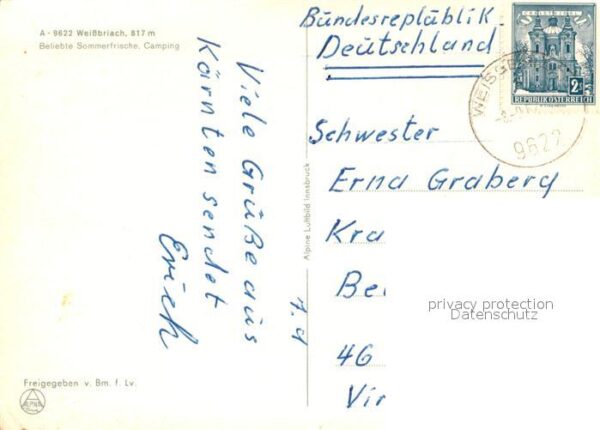 A - 9622 Weißbriach, 817 m
Beliebte Sommerfrische, Camping
Viele Grüße aus
Kärnten sendet
Erich
Freigegeben v. Bm. f. Lv.
Alpine Luftbild Innsbruck
Bundesrepublik
Deutschland
2
REPUBLIK ÖSTERREICH
9622
Schwester
Erna Graberg
Kra
Be
46
Vir
privacy protection
Datenschutz